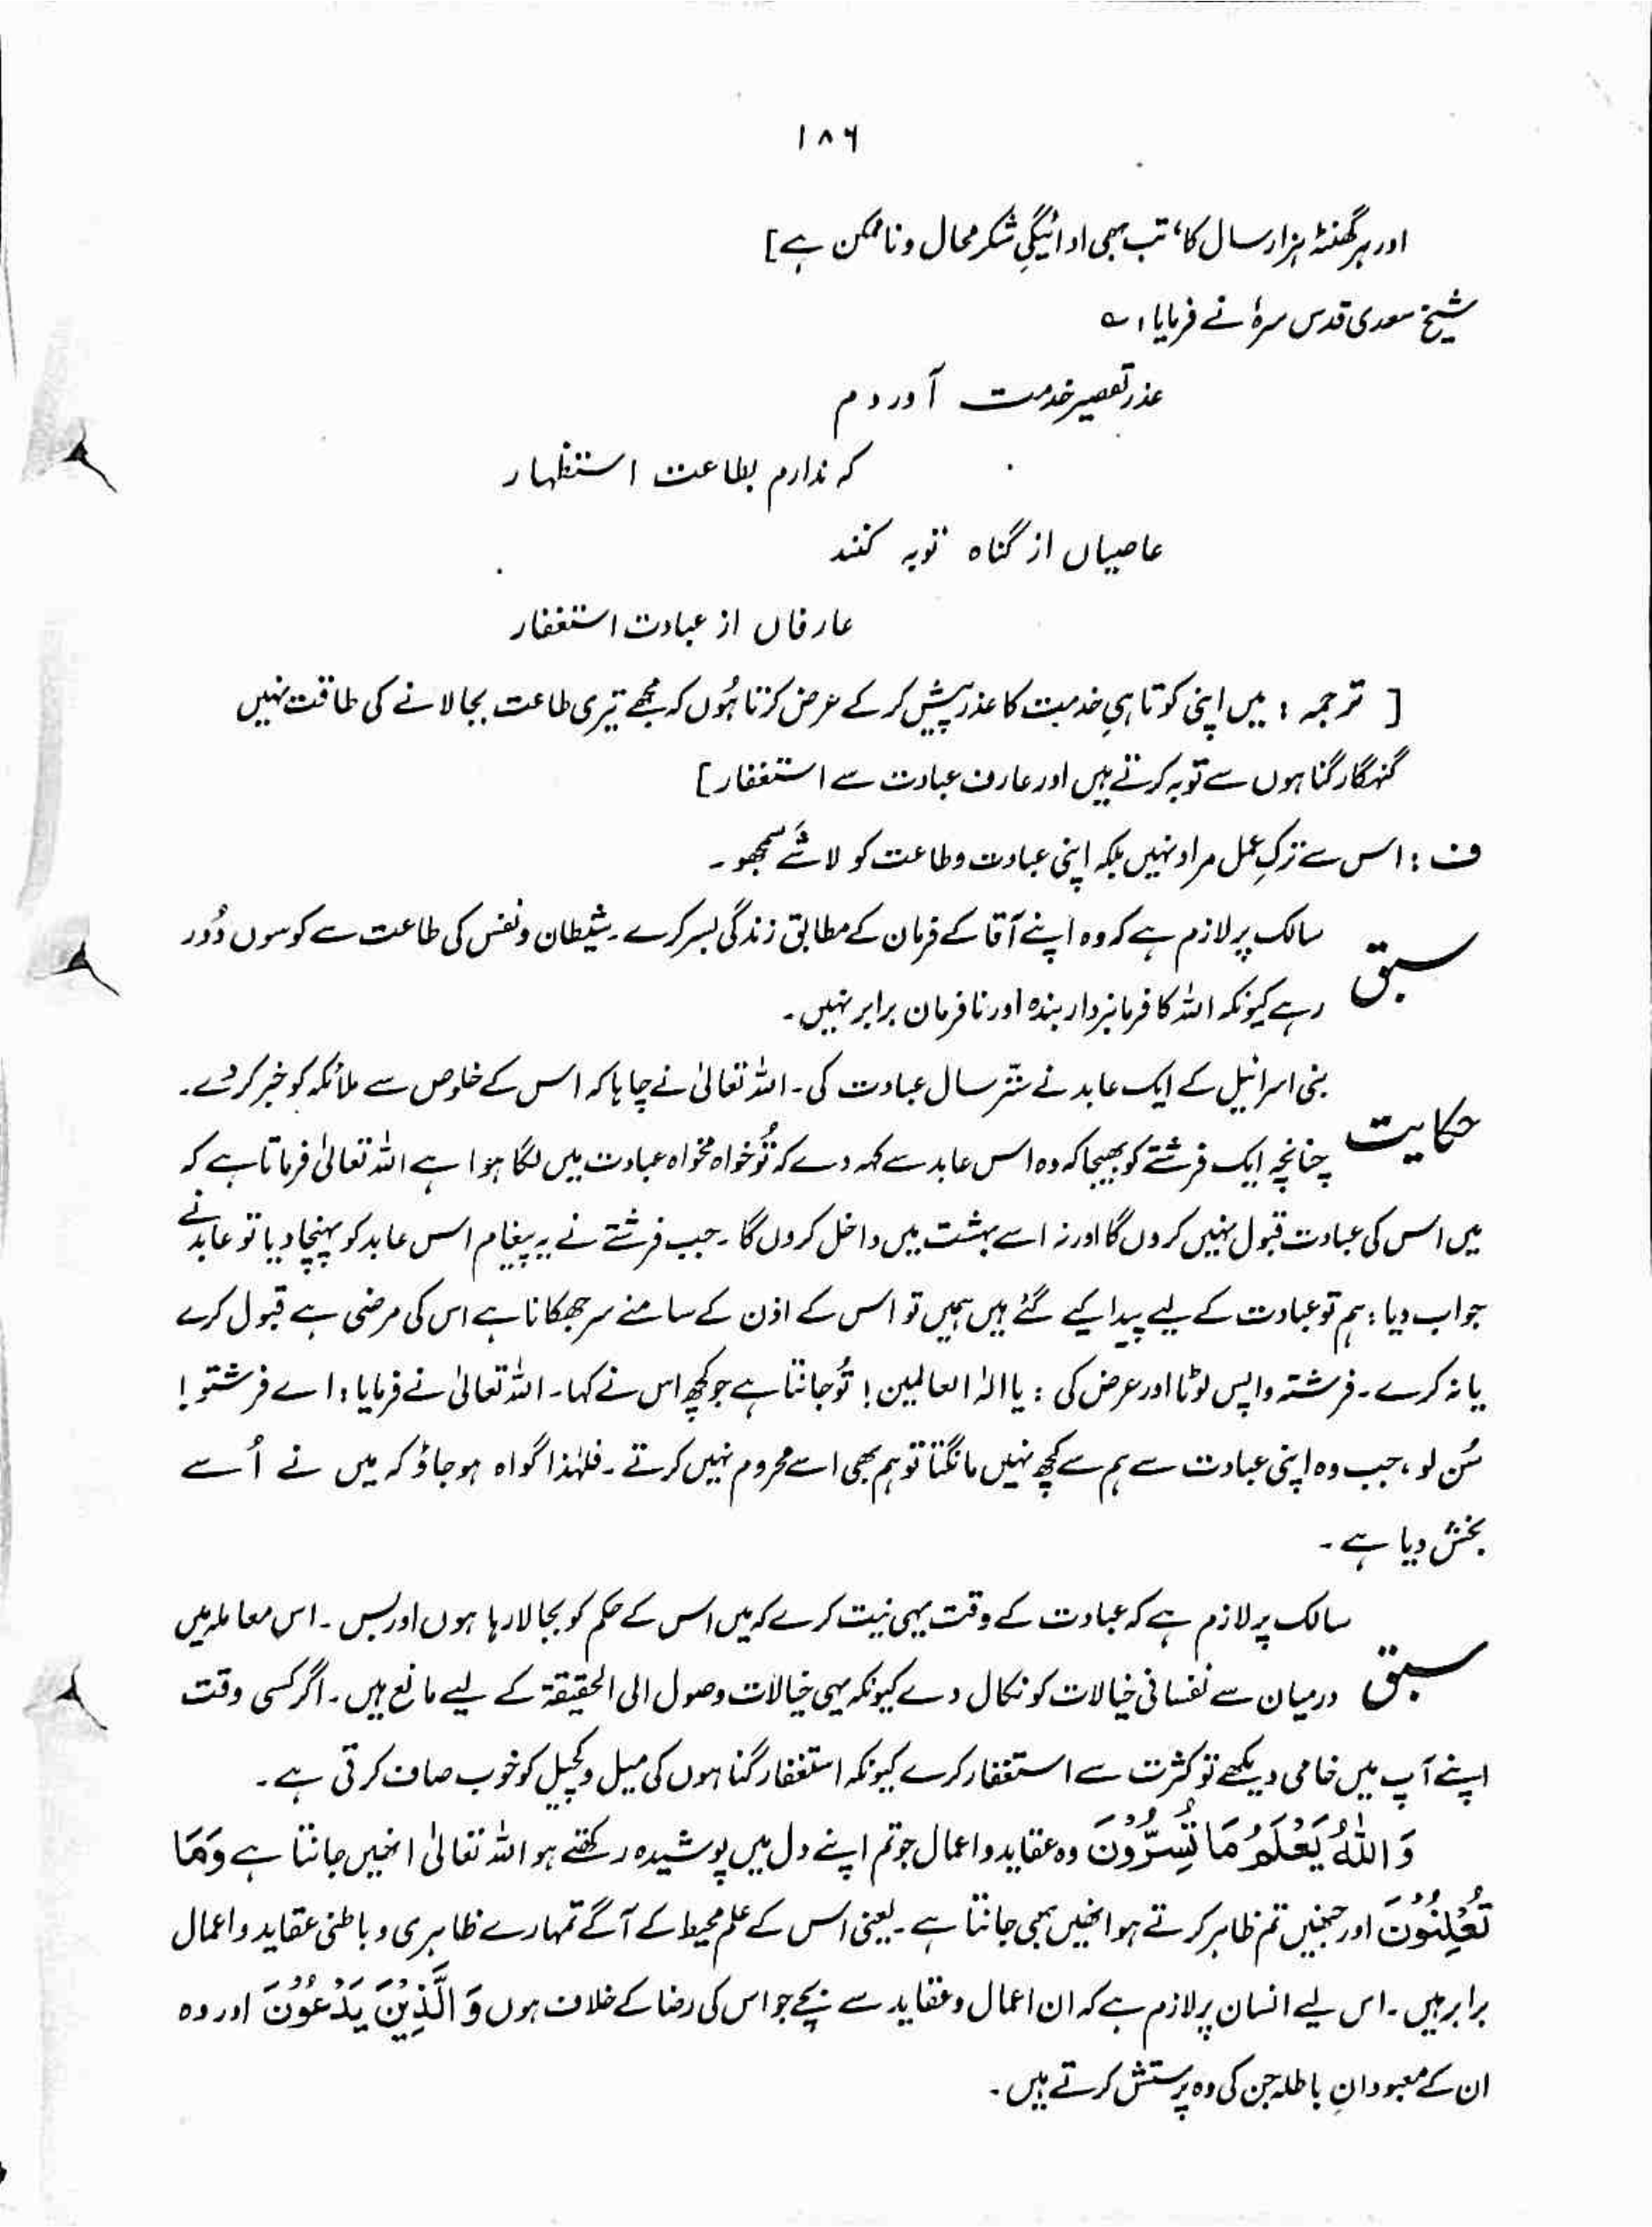 ۱۸۶
اور ہر گھنٹہ ہزار سال کا، تب بھی ادائیگیِ شکر محال و ناممکن ہے]
شیخ سعدی قدس سرہٗ نے فرمایا: ؎
عذر تقصیر خدمت آوردم
کہ ندارم بطاعت استظہار
عاصیاں از گناہ توبہ کنند
عارفاں از عبادت استغفار
[ ترجمہ : میں اپنی کوتاہیِ خدمت کا عذر پیش کر کے عرض کرتا ہُوں کہ مجھے تیری طاعت بجا لانے کی طاقت نہیں
گنہگار گناہوں سے توبہ کرتے ہیں اور عارف عبادت سے استغفار]
ف : اس سے ترکِ عمل مراد نہیں بلکہ اپنی عبادت و طاعت کو لاشَے سمجھو۔
سبق سالک پر لازم ہے کہ وہ اپنے آقا کے فرمان کے مطابق زندگی بسر کرے۔ شیطان و نفس کی طاعت سے کوسوں دُور
رہے کیونکہ اللہ کا فرمانبردار بندہ اور نافرمان برابر نہیں۔
حکایت بنی اسرائیل کے ایک عابد نے ستّر سال عبادت کی۔ اللہ تعالیٰ نے چاہا کہ اس کے خلوص سے ملائکہ کو خبر کر دے۔
چنانچہ ایک فرشتے کو بھیجا کہ وہ اس عابد سے کہہ دے کہ تُو خواہ مخواہ عبادت میں لگا ہوا ہے اللہ تعالیٰ فرماتا ہے کہ
میں اس کی عبادت قبول نہیں کروں گا اور نہ اسے بہشت میں داخل کروں گا۔ جب فرشتے نے یہ پیغام اس عابد کو پہنچا دیا تو عابد نے
جواب دیا : ہم تو عبادت کے لیے پیدا کیے گئے ہیں ہمیں تو اس کے اذن کے سامنے سر جھکانا ہے اس کی مرضی ہے قبول کرے
یا نہ کرے۔ فرشتہ واپس لوٹا اور عرض کی : یا الٰہ العالمین! تُو جانتا ہے جو کچھ اس نے کہا۔ اللہ تعالیٰ نے فرمایا : اے فرشتو!
سُن لو، جب وہ اپنی عبادت سے ہم سے کچھ نہیں مانگتا تو ہم بھی اسے محروم نہیں کرتے۔ فلہٰذا گواہ ہو جاؤ کہ میں نے اُسے
بخش دیا ہے۔
سبق سالک پر لازم ہے کہ عبادت کے وقت یہی نیت کرے کہ میں اس کے حکم کو بجا لا رہا ہوں اور بس۔ اس معاملہ میں
درمیان سے نفسانی خیالات کو نکال دے کیونکہ یہی خیالات وصول الی الحقیقۃ کے لیے مانع ہیں۔ اگر کسی وقت
اپنے آپ میں خامی دیکھے تو کثرت سے استغفار کرے کیونکہ استغفار گناہوں کی میل و کچیل کو خوب صاف کرتی ہے۔
وَاللّٰہُ یَعْلَمُ مَا تُسِرُّوْنَ وہ عقاید و اعمال جو تم اپنے دل میں پوشیدہ رکھتے ہو اللہ تعالیٰ انھیں جانتا ہے وَمَا
تُعْلِنُوْنَ اور جنھیں تم ظاہر کرتے ہو انھیں بھی جانتا ہے۔ یعنی اس کے علم محیط کے آگے تمہارے ظاہری و باطنی عقاید و اعمال
برابر ہیں۔ اس لیے انسان پر لازم ہے کہ ان اعمال و عقاید سے بچے جو اس کی رضا کے خلاف ہوں وَالَّذِیْنَ یَدْعُوْنَ اور وہ
ان کے معبودانِ باطلہ جن کی وہ پرستش کرتے ہیں۔